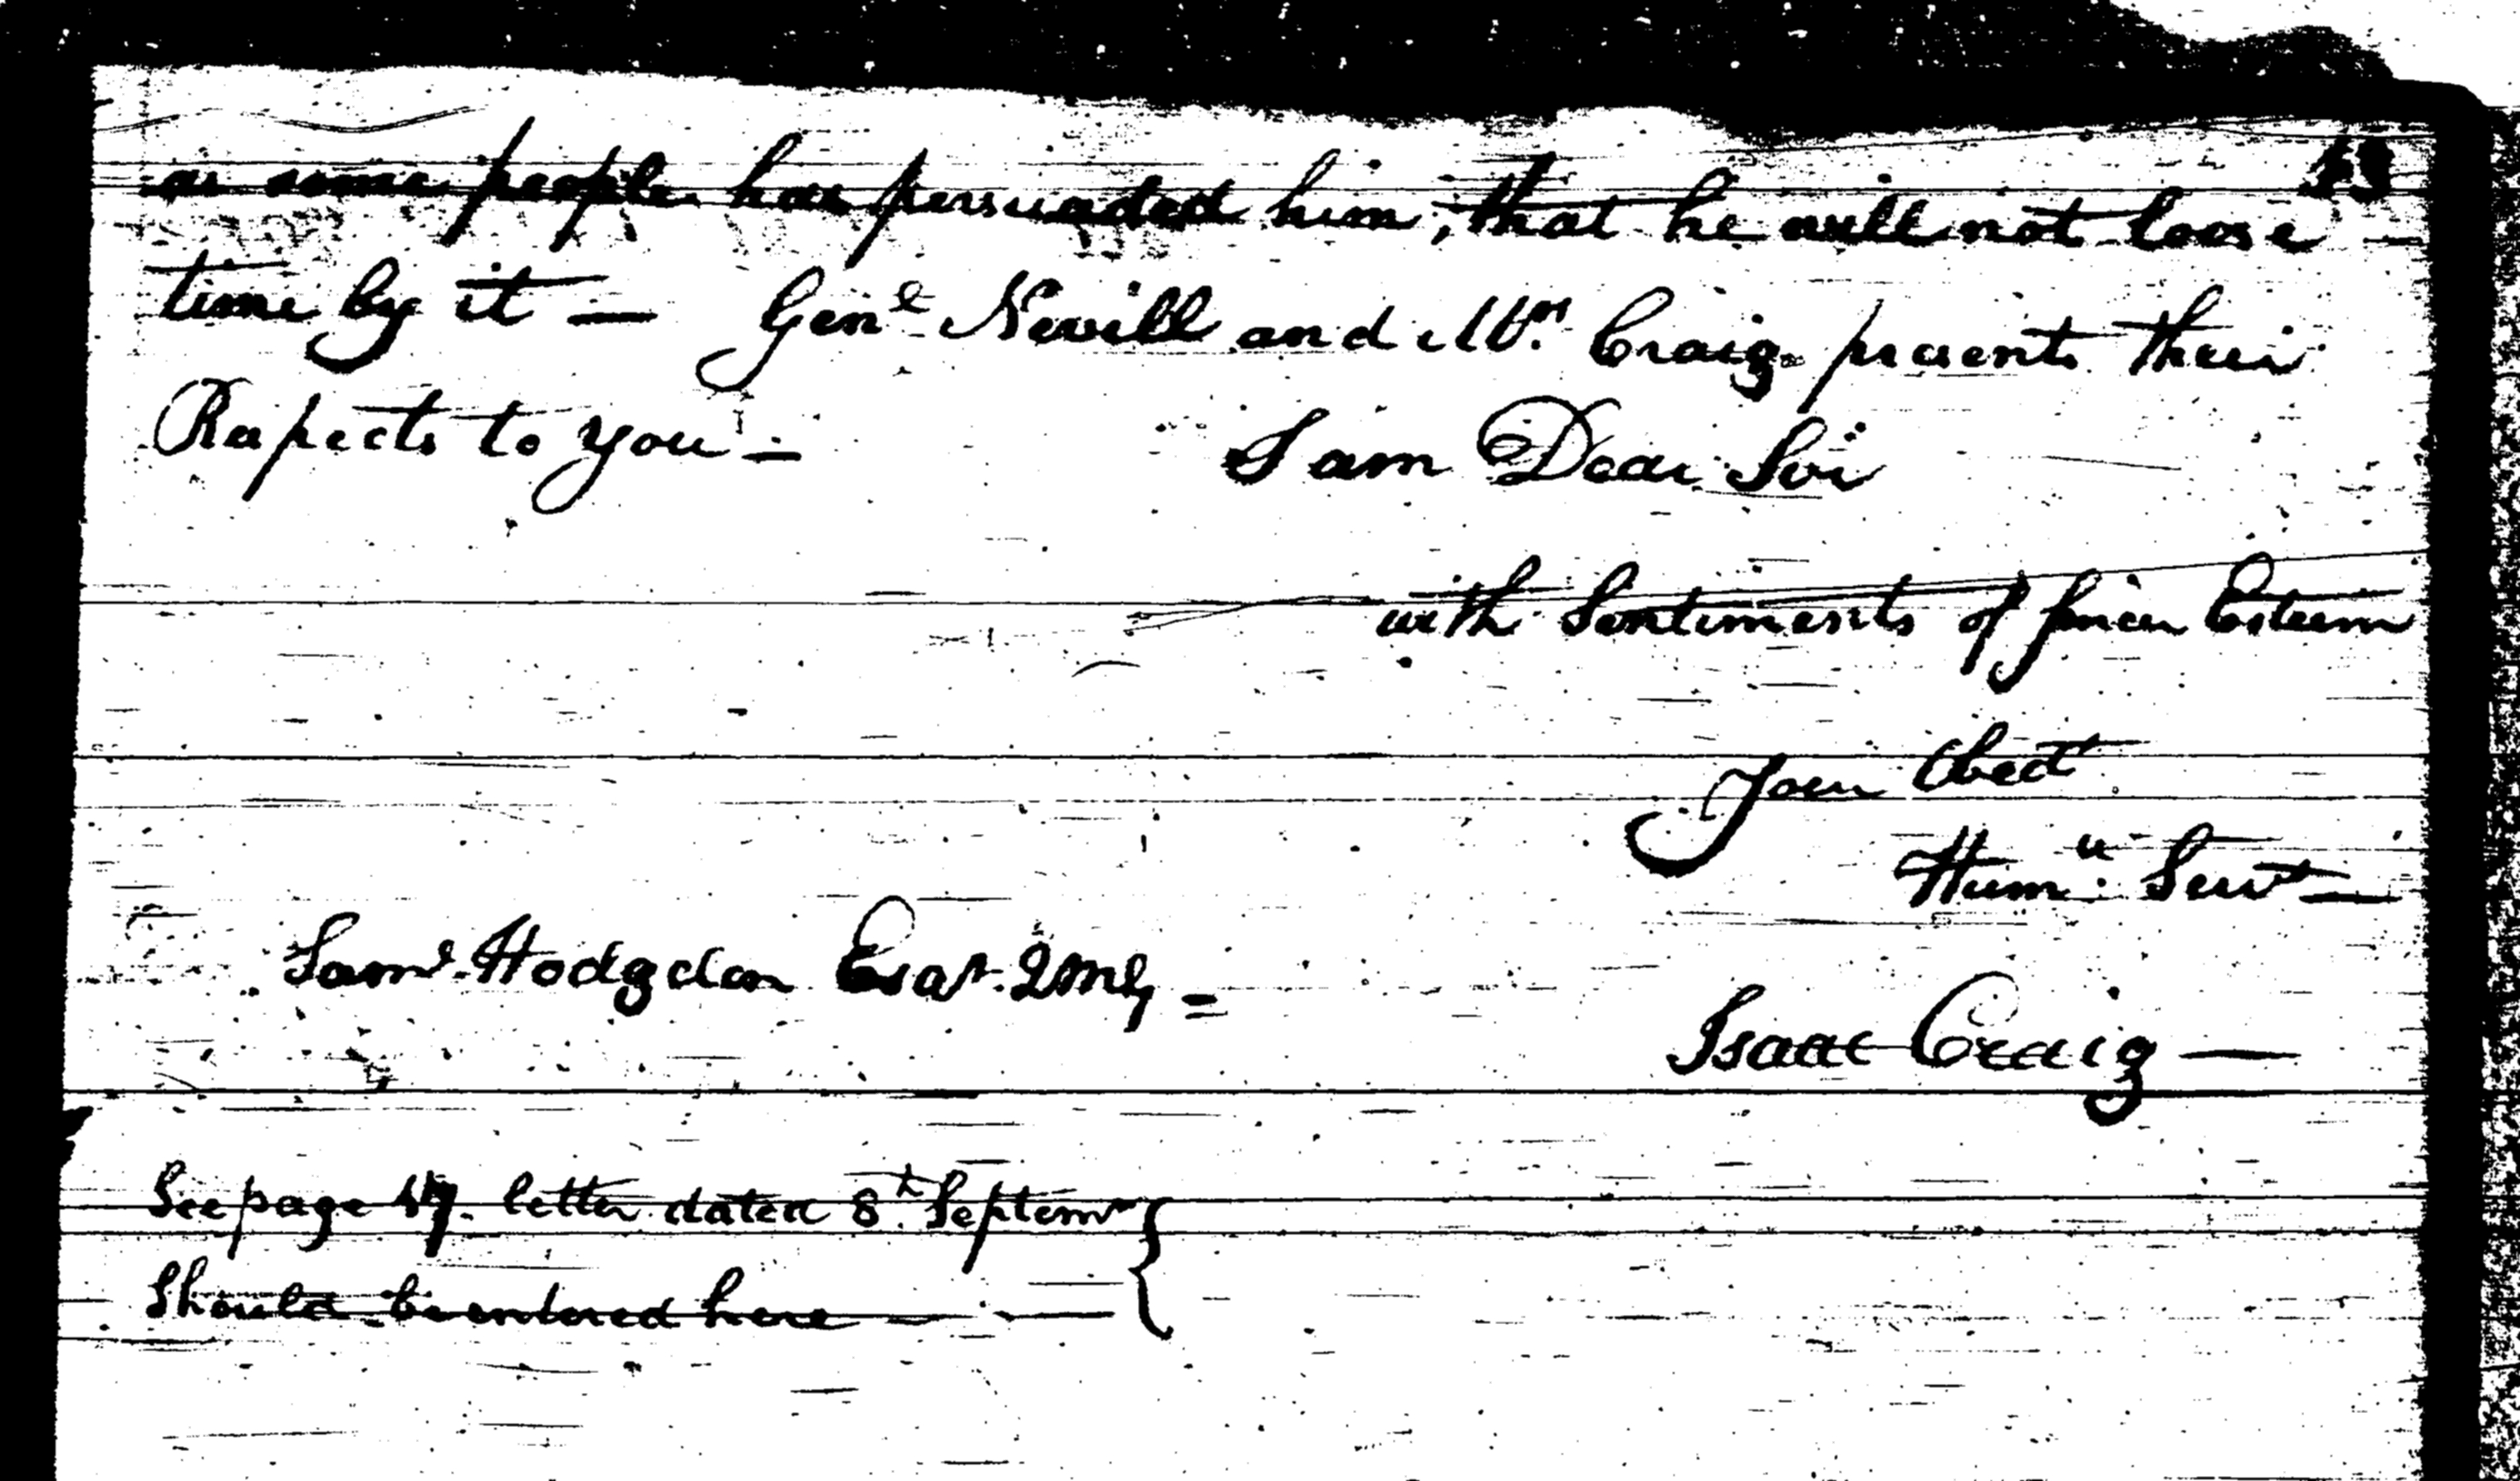 as some people has persuaded him, that he will not loose
time by it — Genl Nevill and Mrs. Craig presents their
Respects to you —
I am Dear Sir
with Sentiments of sincer Esteem
Your Obedt
Hume. Servt —
Saml. Hodgdon Esqr. QMG =
Isaac Craig —
See page letter dated 8th Septemr
Should be entered here —